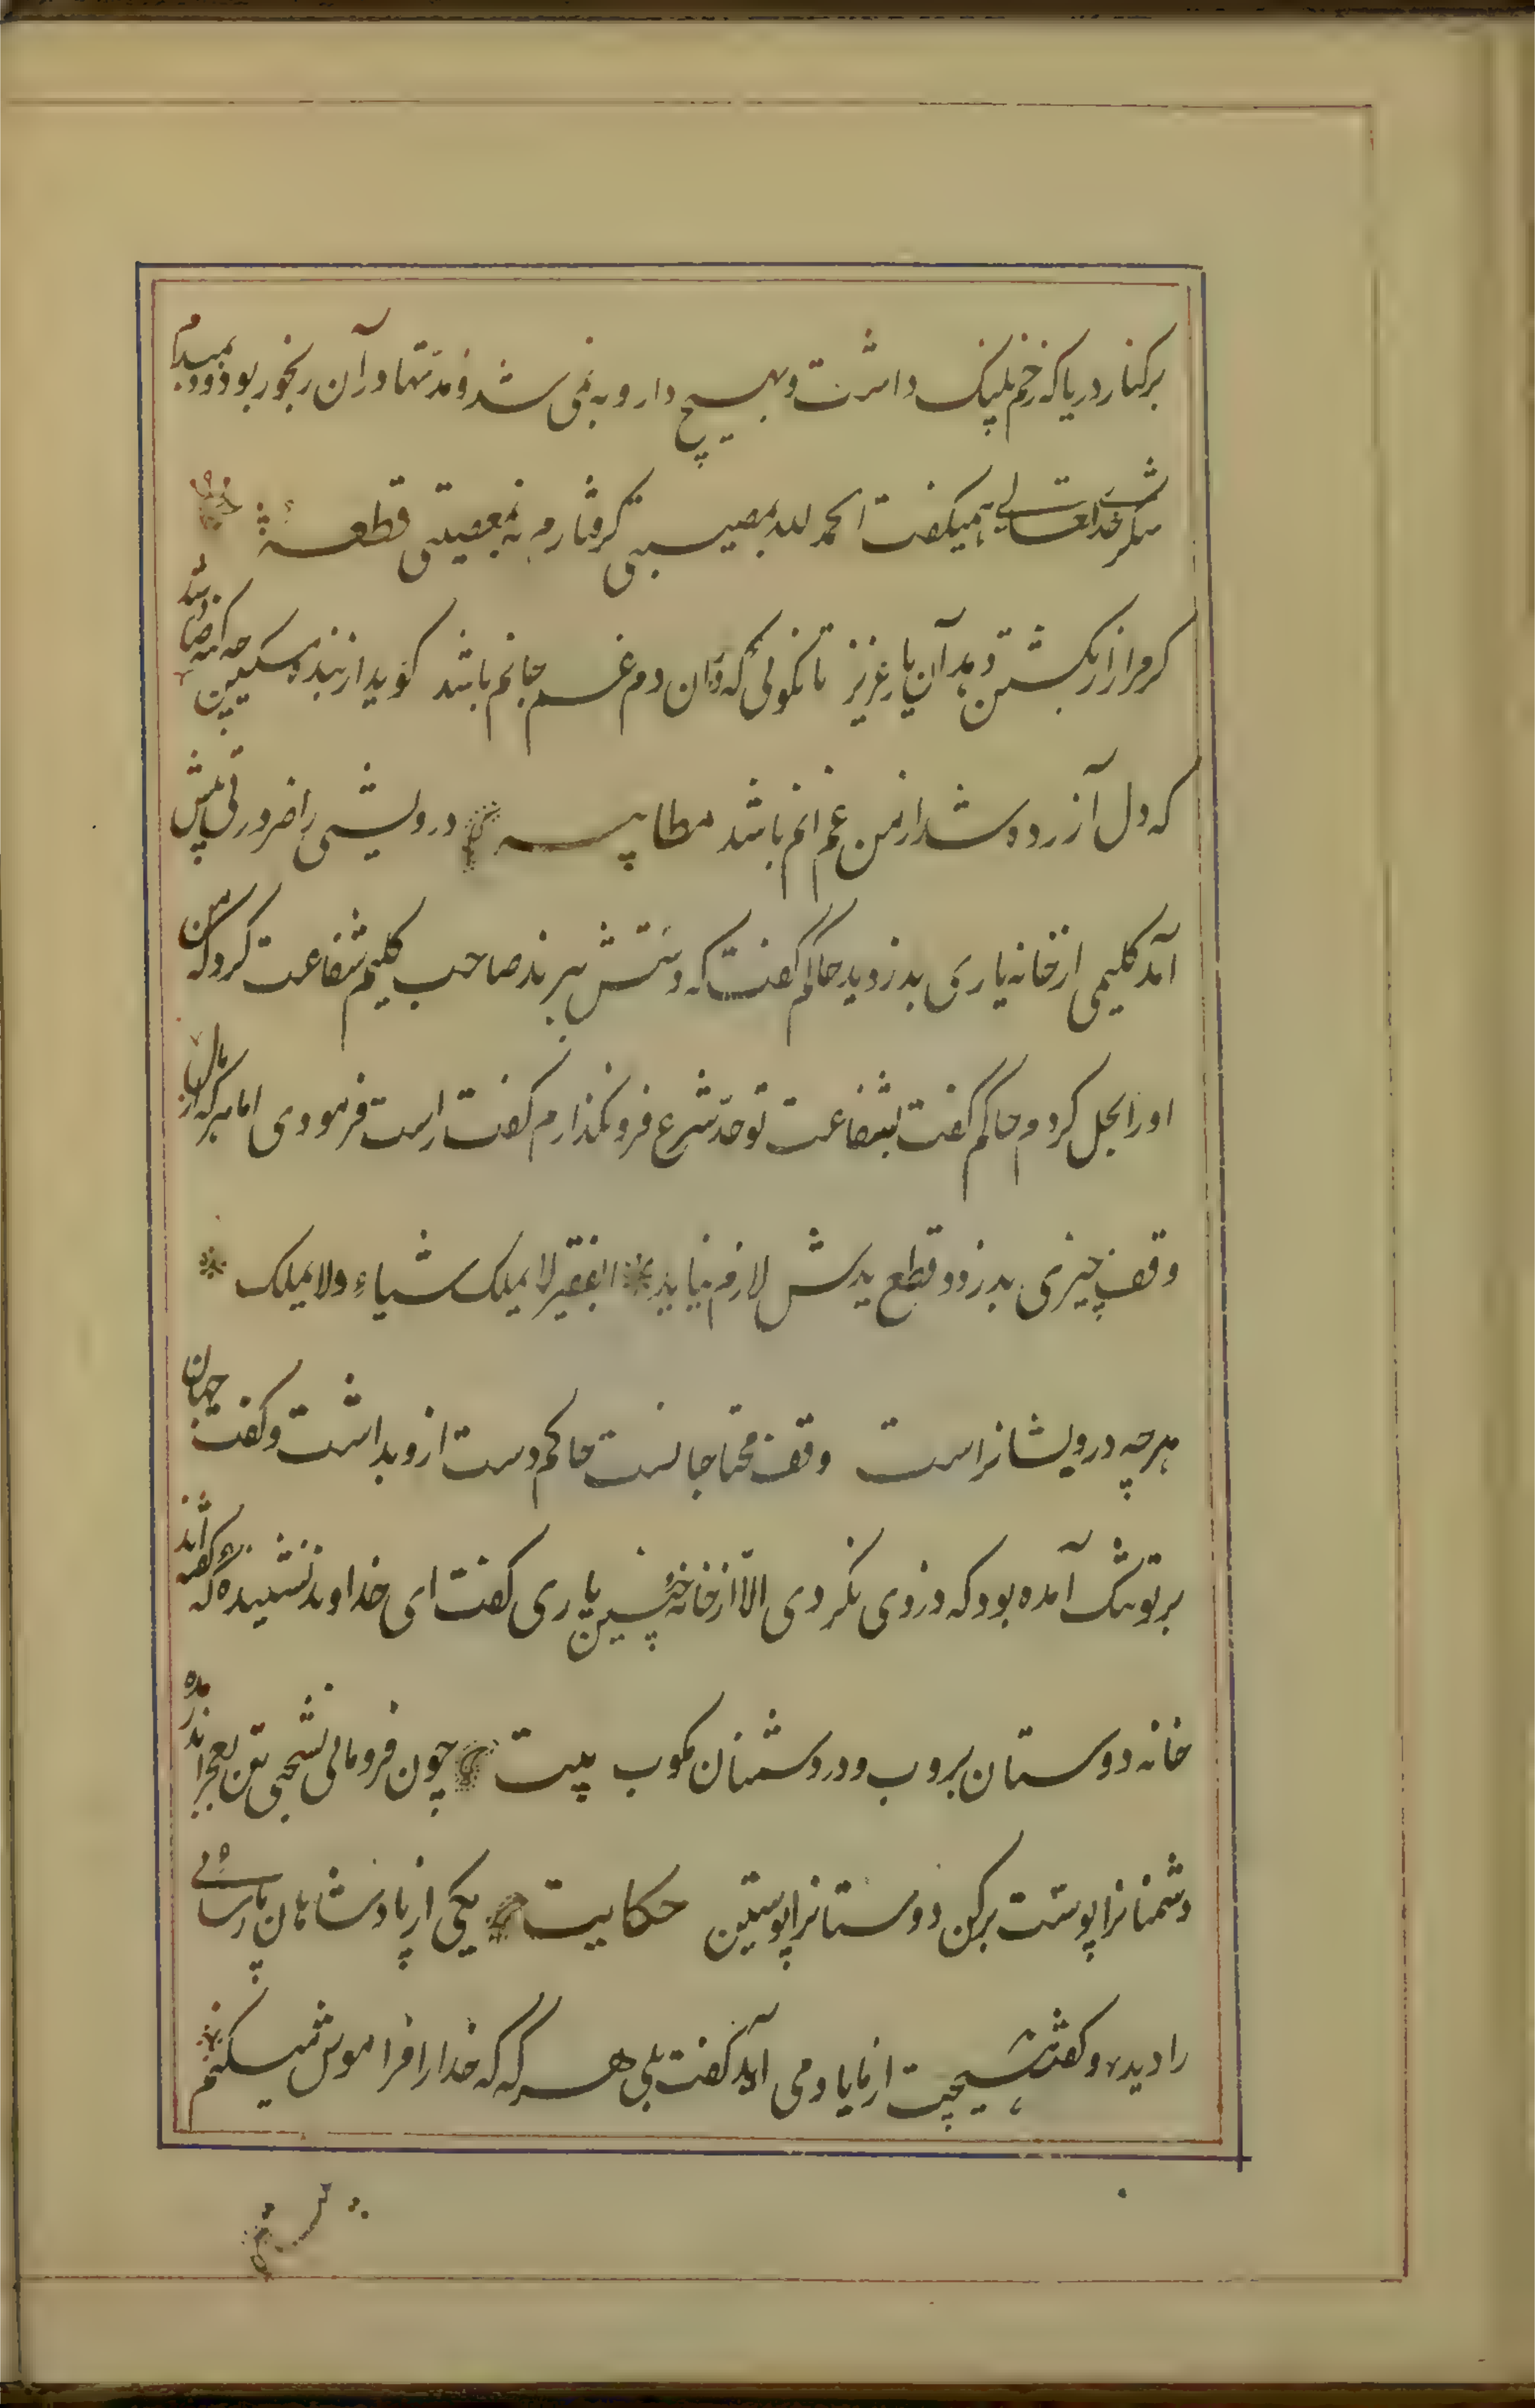 برکنار دریا که زخم پلنک داشت و بهیچ دارو به نمی شد و مدتها در آن رنجور بود و دمبدم
شکر خدایتعالی همیکفت الحمد لله بمصیبتی کرفتارم نه بمعصیتی قطعه
کر مرا زار بکشتن دهد آن یار عزیز تا نکوئی که دران دم غم جانم باشد کوید از بنده مسکین چه کنه صادر شد
که دل آزرده شد از من غم آنم باشد مطایبه درویشی را ضرورتی پیش
آمد کلیمی از خانه یاری بدزدید حاکم کفت که دستش ببرند صاحب کلیم شفاعت کرد که من
او را بحل کردم حاکم کفت بشفاعت تو حد شرع فرونکذارم کفت راست فرمودی اما هر که از مال
وقف چیزی بدزدد قطع یدش لازم نیاید الفقیر لا یملک شیاء ولا یملک
هرچه درویشانراست وقف محتاجانست حاکم دست ازو بداشت و کفت جهان
بر تو تنک آمده بود که دزدی نکردی الا از خانه چنین یاری کفت ای خداوند نشنیده که کفته اند
خانه دوستان بروب و در دشمنان مکوب بیت چون فرومانی بسختی تن بعجز اندر مده
دشمنانرا پوست برکن دوستانرا پوستین حکایت یکی از پادشاهان پارسائی
را دید و کفت هیچت از ما یاد می آید کفت بلی هر که که خدا را فراموش میکنم